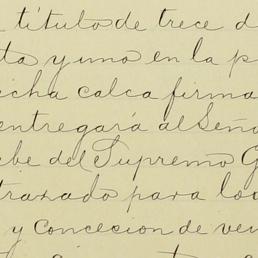 título de trece d
ta y uno en la p
icha calca firma
entregará al Seño
ebe del Supremo G
trazado para los
y Concecion de ven